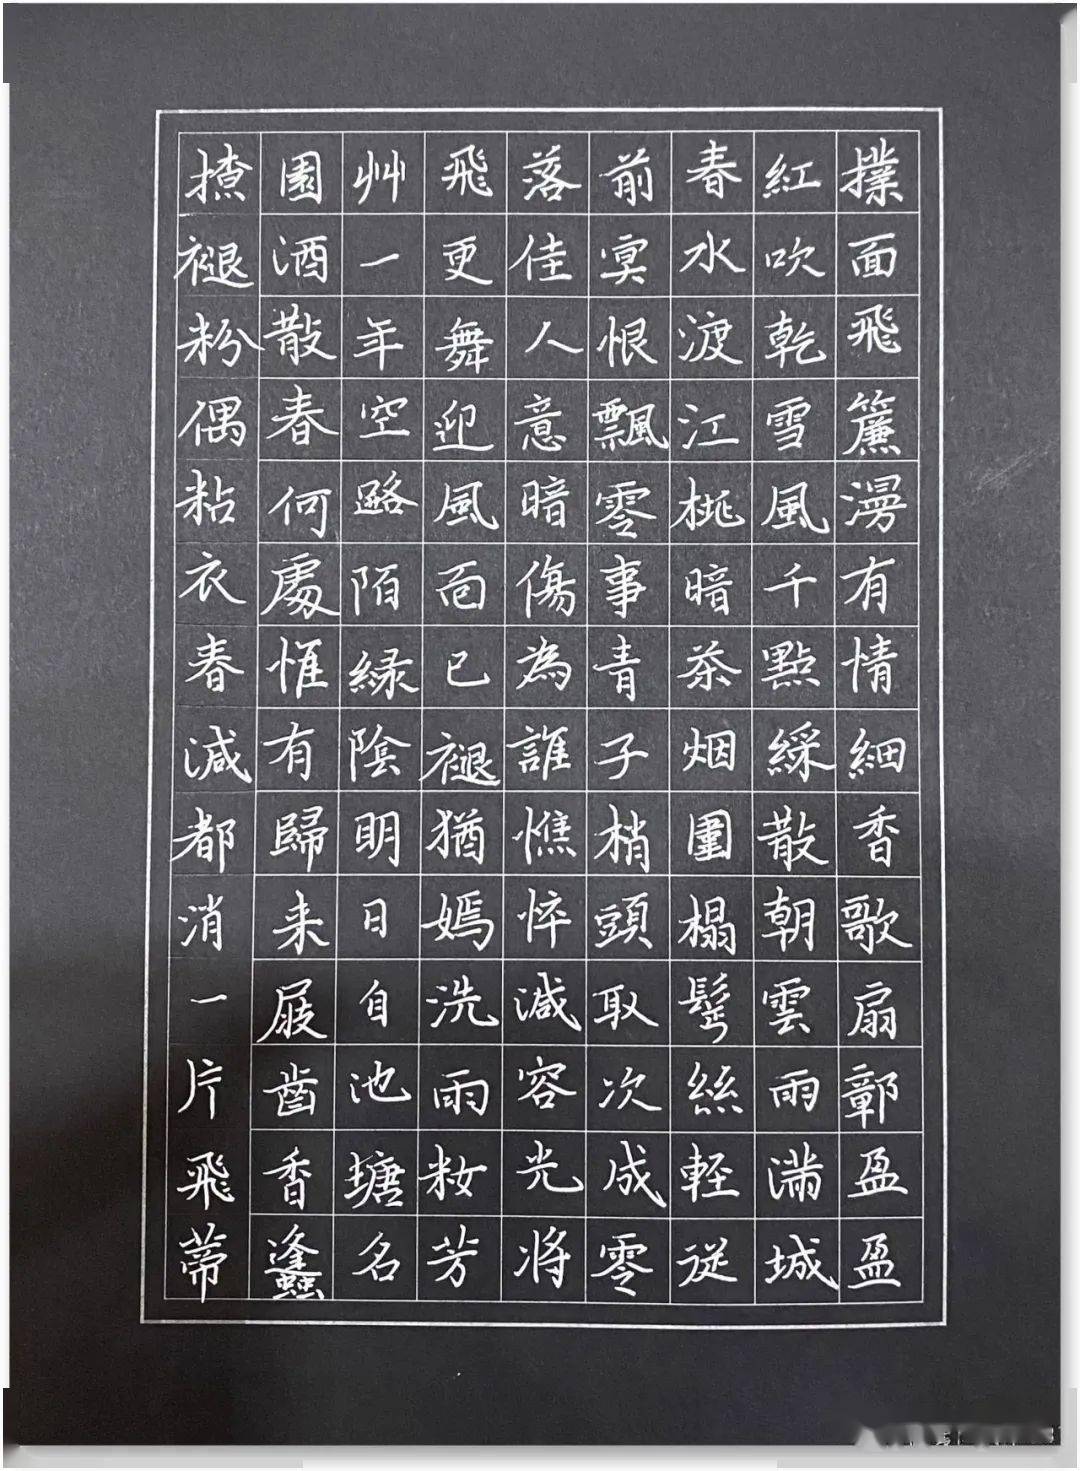 撲面飛簾漫有情細香歌扇鄣盈盈
紅吹乾雪風千點綵散朝雲雨滿城
春水渡江桃暗茶烟圍榻鬢絲輕從
前冥恨飄零事青子梢頭取次成零
落佳人意暗傷為誰憔悴減容光將
飛更舞迎風面已褪猶嫣洗雨籹芳
艸一年空路陌緑陰明日自池塘名
園酒散春何處惟有歸来屐齒香蠭
撩褪粉偶粘衣春減都消一片飛蒂